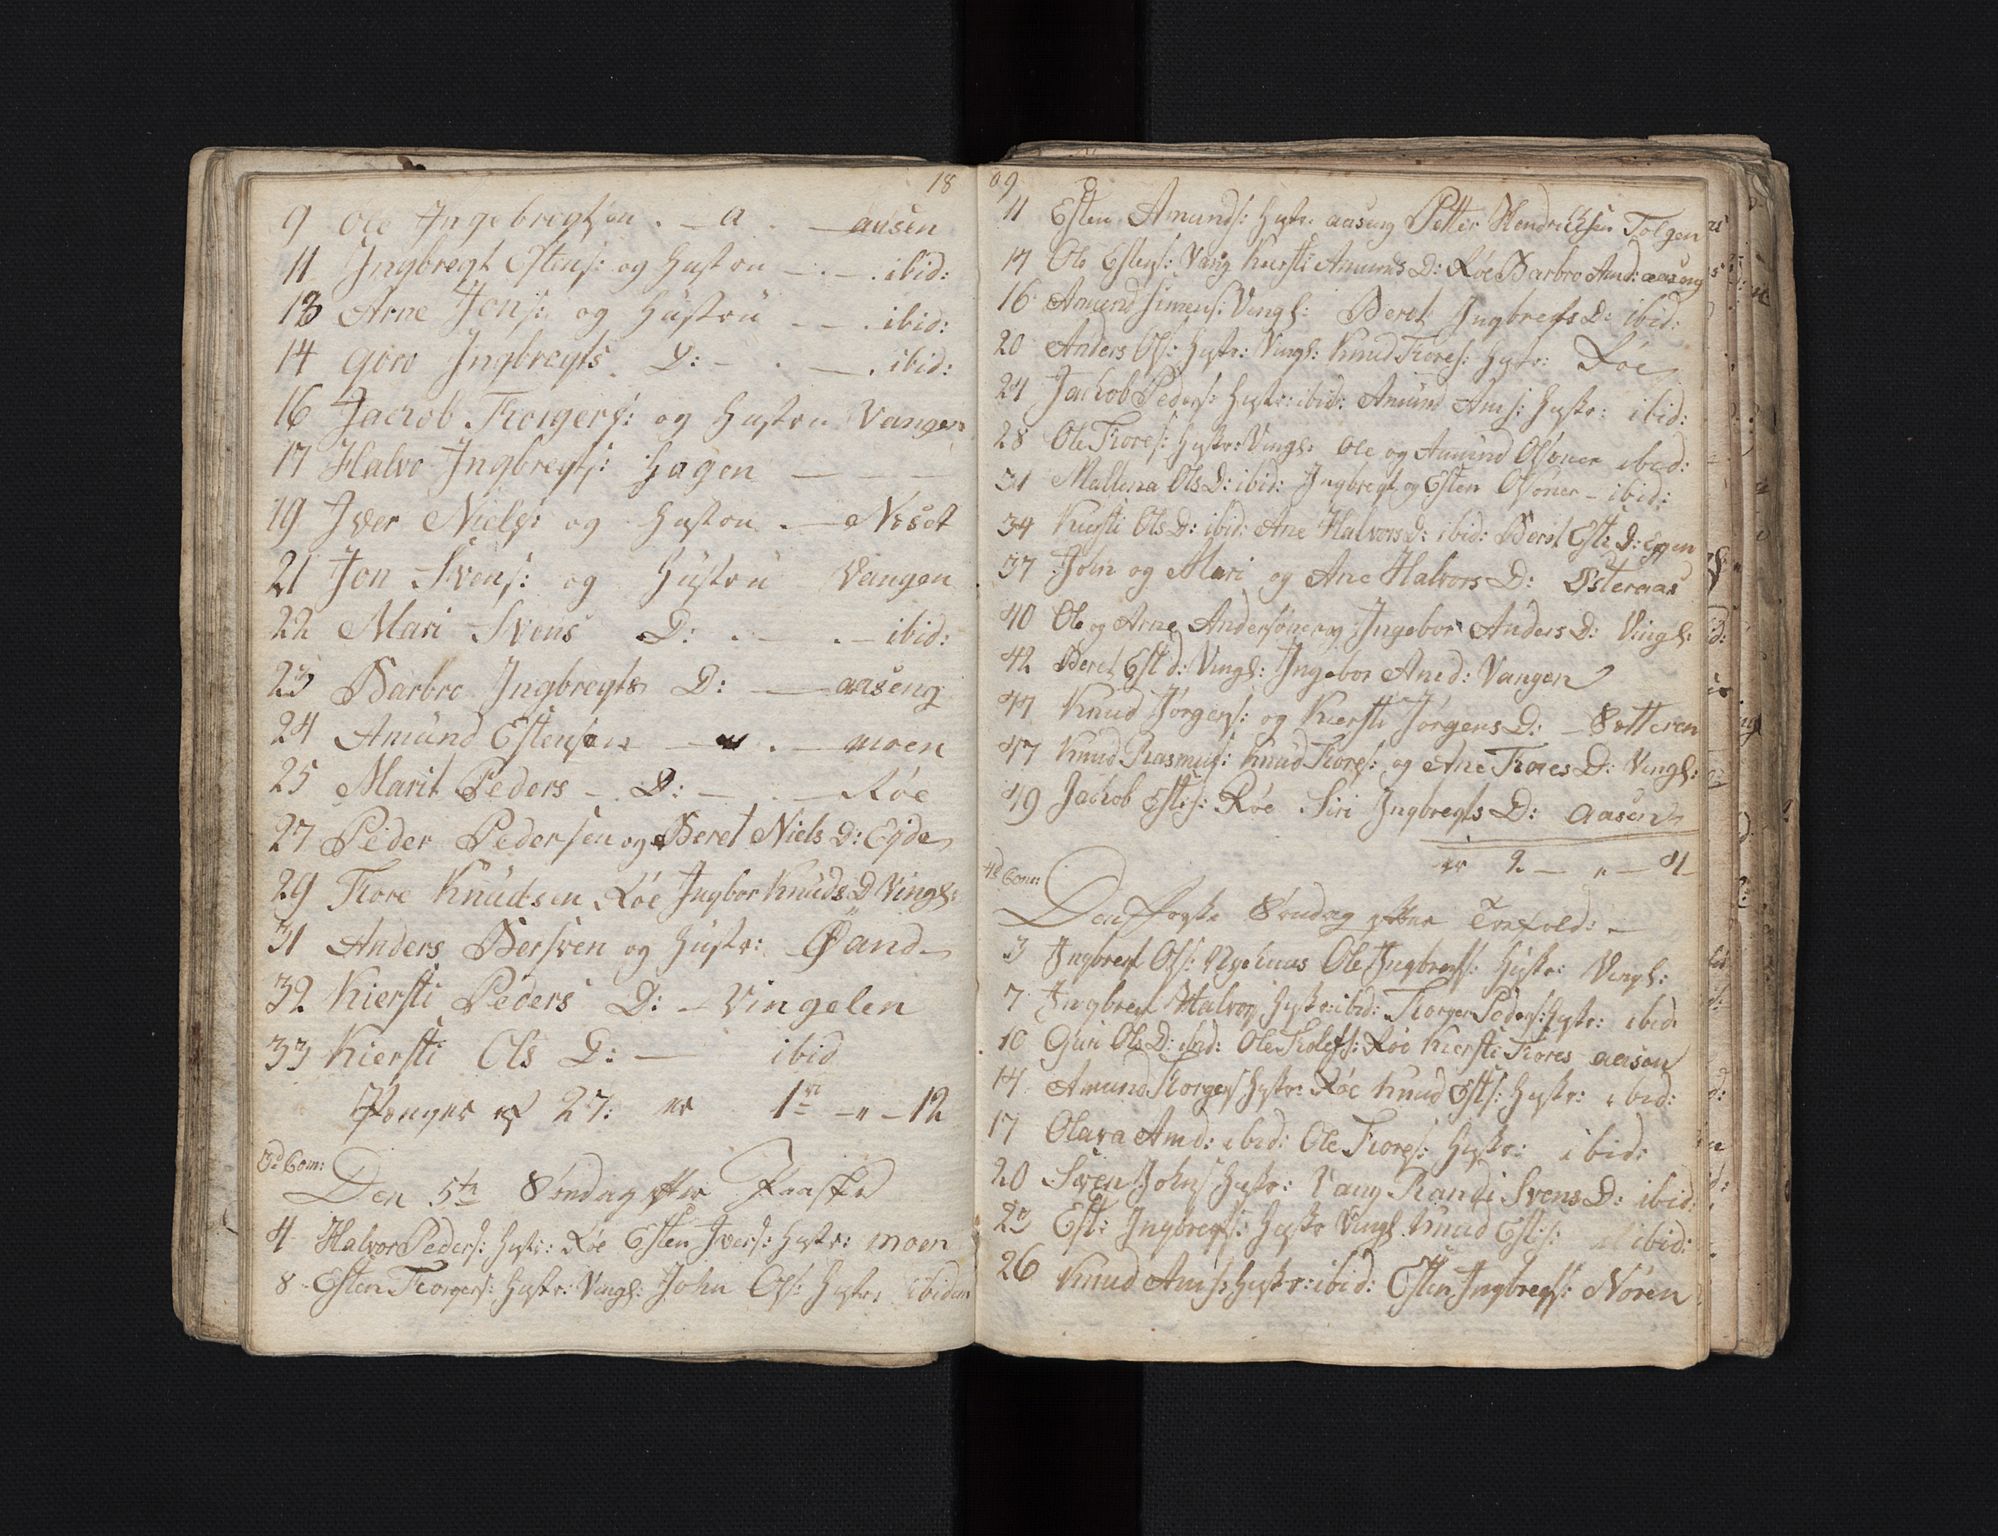 18
9 Ole Ingebregtsen . – a . – aasen
11 Ingbregt Estens: og Hustru – . – . ibid:
13 Arne Jons: og Hustru – – . ibid:
14 Goro Ingbregts D: – . – . ibid:
16 Jacob Torgers: og Hustru Vangen
17 Halvo Ingbregts: Hagen – – –
19 Iver Niels: og Hustru . – Neset
21 Jon Svens: og Hustru – Vangen
22 Mari Svens D: . – . – ibid:
23 Barbro Ingbregts D: – – aaseng
24 Amund Estensen – . – moen
25 Marit Peders – . D: – . – Røe
27 Peder Pedersen og Beret Niels D: Eide
29 Tore Knudsen Røe Ingbor Knuds D Vingl:
31 Anders Bersven og Hustr: Øand –
32 Kiersti Peders D: – Vingelen
33 Kiersti Ols D: – ibid
Penger af 27: er 1 – " – 12
3d Com:
Den 5te Søndag efter Paaske
4 Halvor Peders: Hustr: Røe Esten Ivers: Hustr: moen
8 Esten Torgers: Hustr: Vingl: John Ols: Hustr: ibidem
09
11 Esten Amunds: Hustr: aaseng Petter Hendrichsen Tolgen
14 Ole Estens: Vang Kiersti Amunds D: Røe Barbro Amd: aaseng
16 Amund Simens: Vingl: Beret Ingbregts D: ibid:
20 Anders Ols: Hustr: Vingl: Knud Tores: Hustr: Røe
24 Jachob Peders: Hustr: ibid: Amund Ams: Hustr: ibid:
28 Ole Tores: Hustr: Vingl: Ole og Amund Olsøner ibid:
31 Mallena Ols D: ibid: Ingbregt og Esten Olsøner – ibid:
34 Kiersti Ols D: ibid: Ane Halvors D: ibid: Beret Est: D: Eggen
37 John og Mari og Ane Halvors D: Østeraas
40 Ole og Arne Andersøner og Ingebor Anders D: Vingl:
42 Beret Est d: Vingl: Ingebor Amd: Vangen
44 Knud Jørgens: og Kiersti Jørgens D: – Sætteren
47 Knud Rasmus: Knud Tores: og Ane Tores D: Vingl:
49 Jachob Ests: Røe Siri Ingbregts D: Aasen
er 2 – " – 4
4d Com:
Den første Søndag efter Trefold: –
3 Ingbregt Ols: Nyehuus Ole Ingbregts: Hustr: Vingl:
7 Ingbregt Halvors Hustr: ibid: Torger Peders: Hustr: ibid
10 Guri Ols D: ibid: Ole Tolefs: Røe Kiersti Tores aasen
14 Amund Torgers Hustr: Røe Knud Ests: Hustr: ibid:
17 Olava Amd: ibid: Ole Tores: Hustr: ibid:
20 Sven Johns Hustr: Vang Randi Svens D: ibid:
23 Est: Ingbregts: Hustr Vingl. Knud Est:s: ibid:
26 Knud Ams: Hustr: ibid: Esten Ingbregts: Nøren